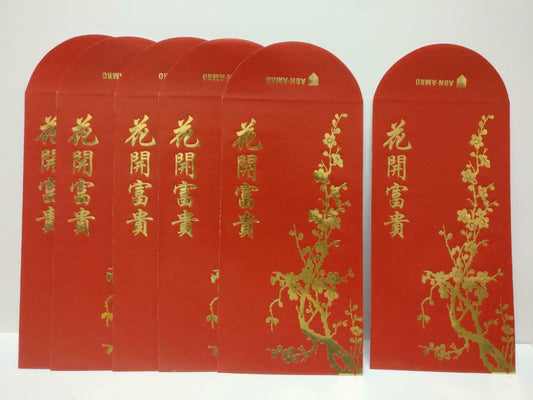 ABN·AMRO
ABN·AMRO
ABN·AMRO
ABN·AMRO
花開富貴
花開富貴
花開富貴
花開富貴
花開富貴
花開富貴